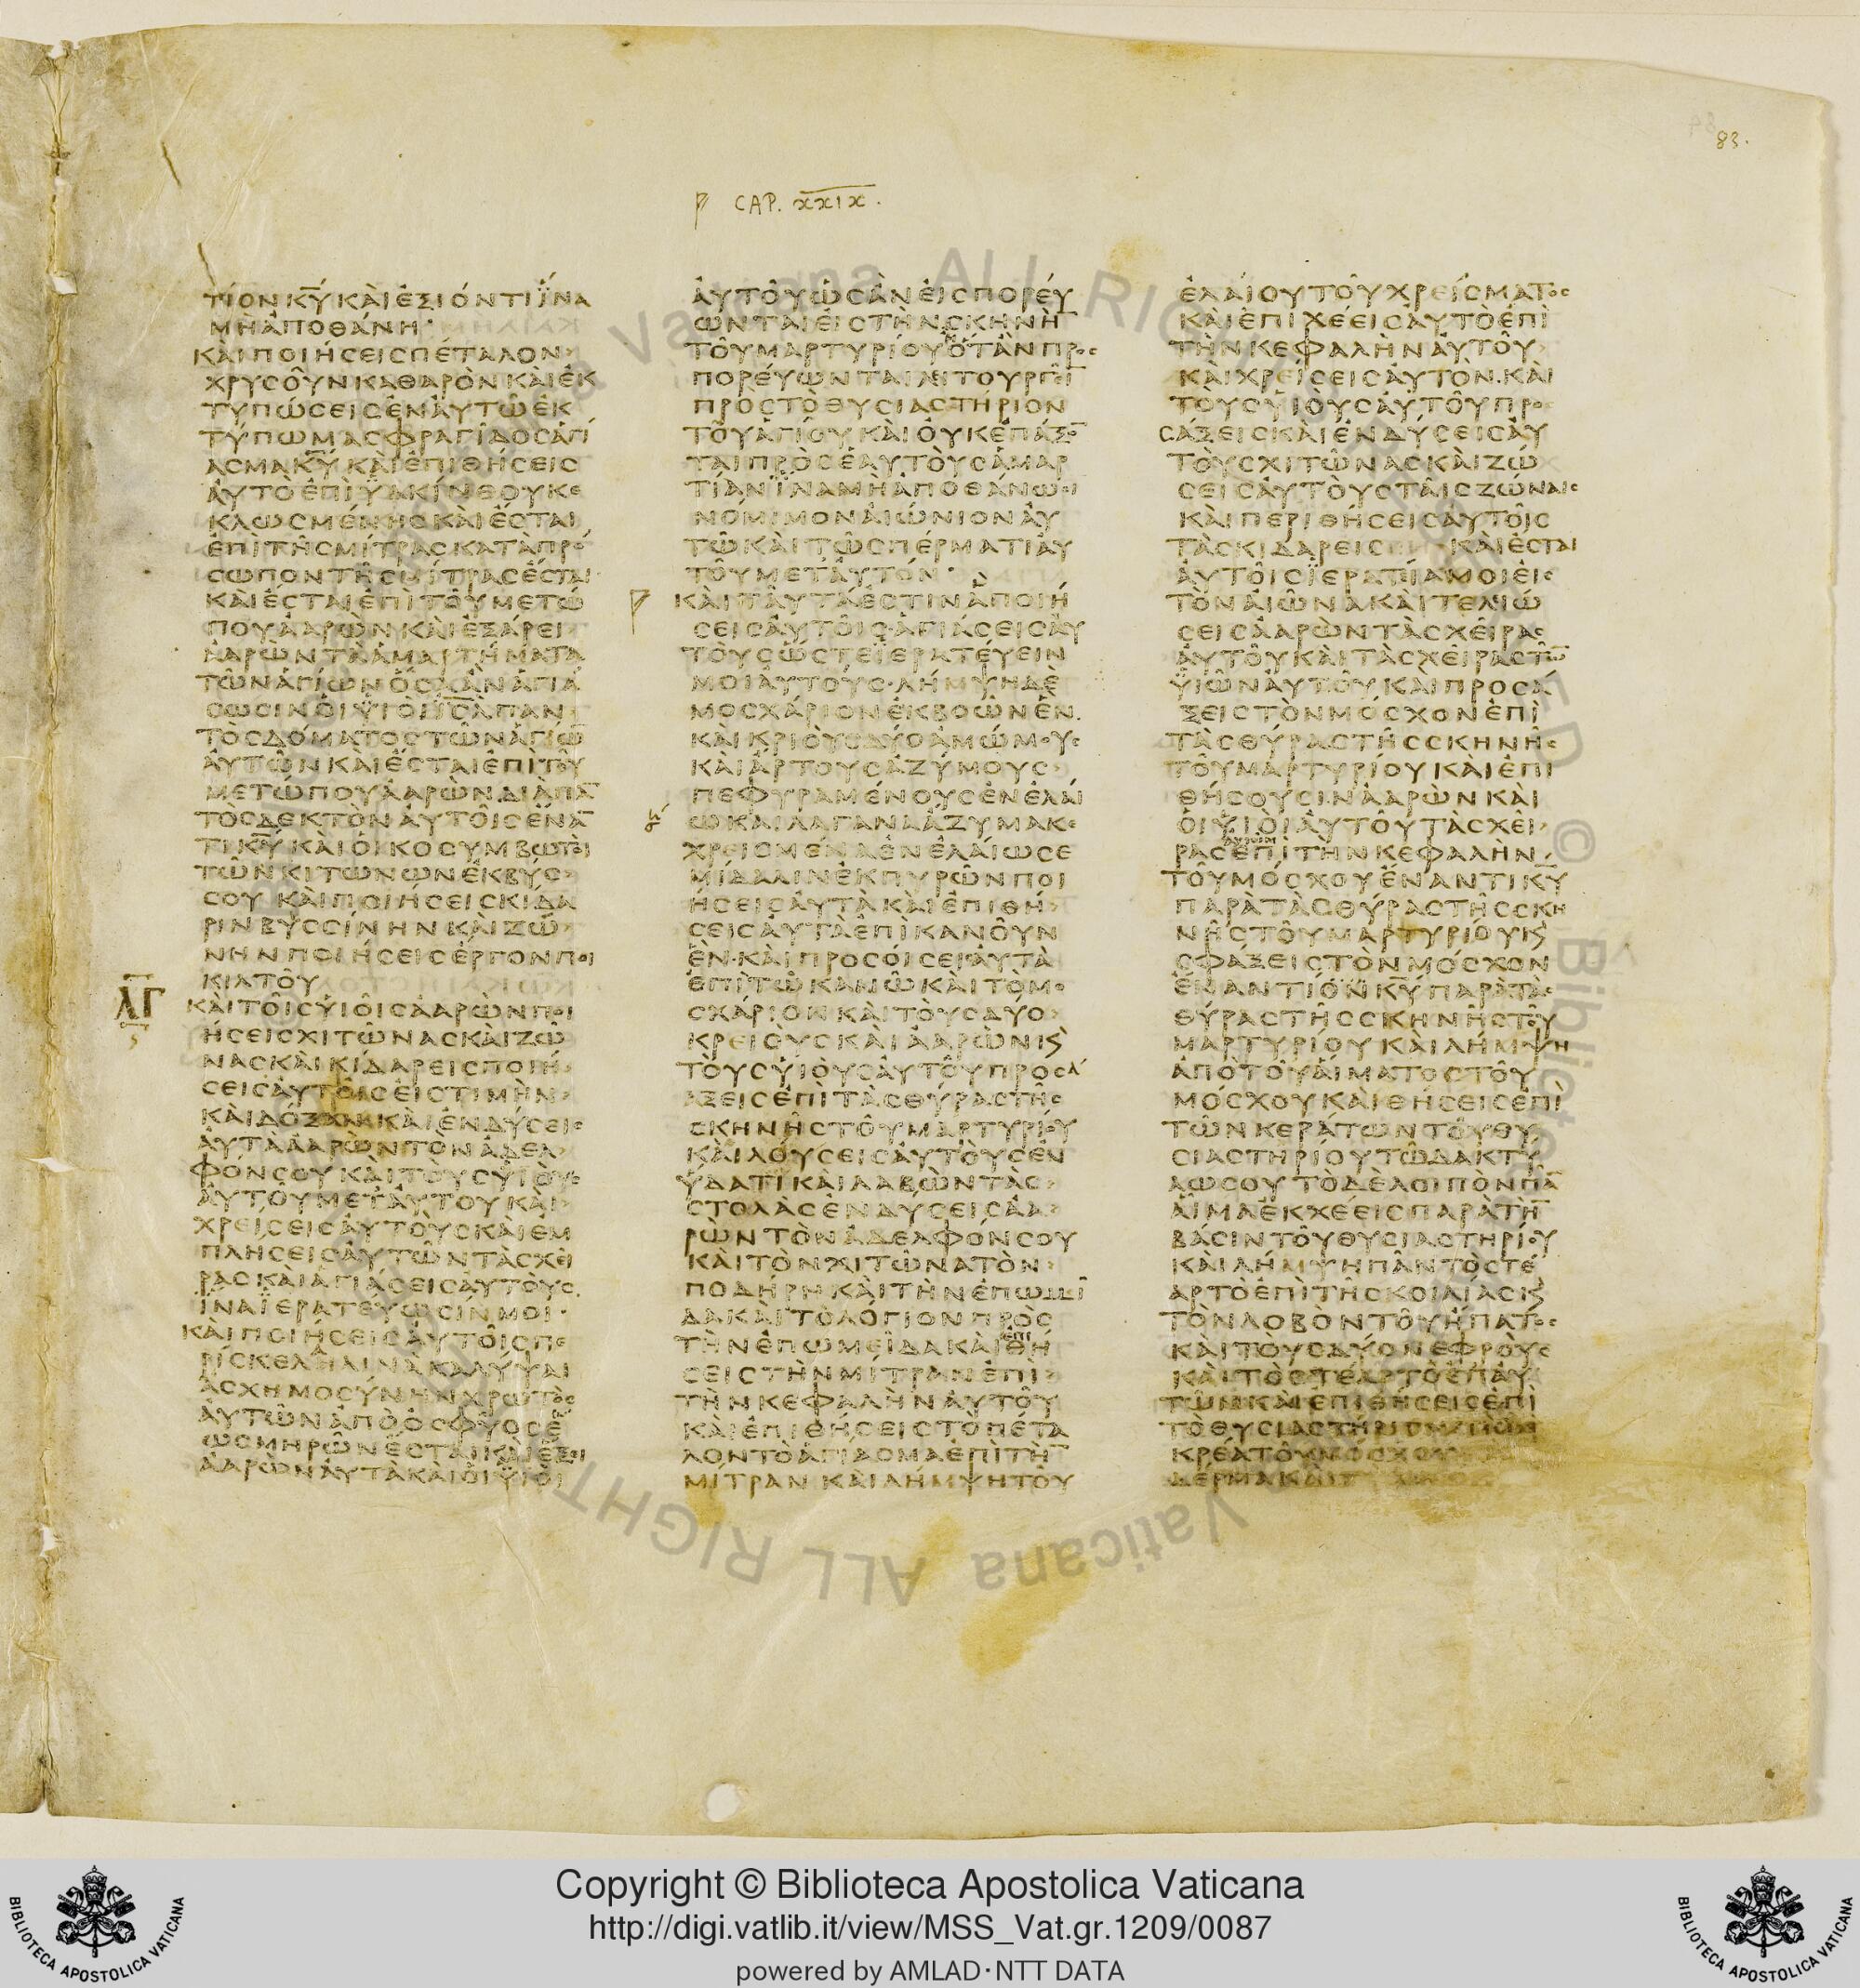 83.
CAP. XXIX.
ΤΙΟΝΚΥΚΑΙΕΞΙΟΝΤΙΙΝΑ
ΜΗΑΠΟΘΑΝΗ
ΚΑΙΠΟΙΗΣΕΙΣΠΕΤΑΛΟΝ
ΧΡΥΣΟΥΝΚΑΘΑΡΟΝΚΑΙΕΚ
ΤΥΠΩΣΕΙΣΕΝΑΥΤΩΕΚ
ΤΥΠΩΜΑΣΦΡΑΓΙΔΟΣΑΓΙ
ΑΣΜΑΚΥΚΑΙΕΠΙΘΗΣΕΙΣ
ΑΥΤΟΕΠΙΥΑΚΙΝΘΟΥΚΕ
ΚΛΩΣΜΕΝΗΣΚΑΙΕΣΤΑΙ
ΕΠΙΤΗΣΜΙΤΡΑΣΚΑΤΑΠΡΟ
ΣΩΠΟΝΤΗΣΜΙΤΡΑΣΕΣΤΑΙ
ΚΑΙΕΣΤΑΙΕΠΙΤΟΥΜΕΤΩ
ΠΟΥΑΑΡΩΝΚΑΙΕΞΑΡΕΙ
ΑΑΡΩΝΤΑΑΜΑΡΤΗΜΑΤΑ
ΤΩΝΑΓΙΩΝΟΣΑΑΝΑΓΙΑ
ΣΩΣΙΝΟΙΥΙΟΙΙΣΛΠΑΝ
ΤΟΣΔΟΜΑΤΟΣΤΩΝΑΓΙΩ
ΑΥΤΩΝΚΑΙΕΣΤΑΙΕΠΙΤΟΥ
ΜΕΤΩΠΟΥΑΑΡΩΝΔΙΑΠΑ
ΤΟΣΔΕΚΤΟΝΑΥΤΟΙΣΕΝΑ
ΤΙΚΥΚΑΙΟΙΚΟΣΥΜΒΩΤΟΙ
ΤΩΝΚΙΤΩΝΩΝΕΚΒΥΣ
ΣΟΥΚΑΙΠΟΙΗΣΕΙΣΚΙΔΑ
ΡΙΝΒΥΣΣΙΝΗΝΚΑΙΖΩ
ΝΗΝΠΟΙΗΣΕΙΣΕΡΓΟΝΠΟΙ
ΚΙΛΤΟΥ
ΛΓ
ΚΑΙΤΟΙΣΥΙΟΙΣΑΑΡΩΝΠΟΙ
ΗΣΕΙΣΧΙΤΩΝΑΣΚΑΙΖΩ
ΝΑΣΚΑΙΚΙΔΑΡΕΙΣΠΟΙΗ
ΣΕΙΣΑΥΤΟΙΣΕΙΣΤΙΜΗΝ
ΚΑΙΔΟΞΑΝΚΑΙΕΝΔΥΣΕΙΣ
ΑΥΤΑΑΑΡΩΝΤΟΝΑΔΕΛ
ΦΟΝΣΟΥΚΑΙΤΟΥΣΥΙΟΥΣ
ΑΥΤΟΥΜΕΤΑΥΤΟΥΚΑΙ
ΧΡΕΙΣΕΙΣΑΥΤΟΥΣΚΑΙΕΜ
ΠΛΗΣΕΙΣΑΥΤΩΝΤΑΣΧΕΙ
ΡΑΣΚΑΙΑΓΙΑΣΕΙΣΑΥΤΟΥΣ
ΙΝΑΙΕΡΑΤΕΥΩΣΙΝΜΟΙ
ΚΑΙΠΟΙΗΣΕΙΣΑΥΤΟΙΣΠΕ
ΡΙΣΚΕΛΗΛΙΝΑΚΑΛΥΨΑΙ
ΑΣΧΗΜΟΣΥΝΗΝΧΡΩΤΟΣ
ΑΥΤΩΝΑΠΟΟΣΦΥΟΣΕ
ΩΣΜΗΡΩΝΕΣΤΑΙΚΑΙΕΞΕΙ
ΑΑΡΩΝΑΥΤΑΚΑΙΟΙΥΙΟΙ
ΑΥΤΟΥΩΣΑΝΕΙΣΠΟΡΕΥ
ΩΝΤΑΙΕΙΣΤΗΝΣΚΗΝΗ
ΤΟΥΜΑΡΤΥΡΙΟΥΟΤΑΝΠΡΟΣ
ΠΟΡΕΥΩΝΤΑΙΛΙΤΟΥΡΓΙ
ΠΡΟΣΤΟΘΥΣΙΑΣΤΗΡΙΟΝ
ΤΟΥΑΓΙΟΥΚΑΙΟΥΚΕΠΑΞΟ
ΤΑΙΠΡΟΣΕΑΥΤΟΥΣΑΜΑΡ
ΤΙΑΝΙΝΑΜΗΑΠΟΘΑΝΩΣΙ
ΝΟΜΙΜΟΝΑΙΩΝΙΟΝΑΥ
ΤΩΚΑΙΤΩΣΠΕΡΜΑΤΙΑΥ
ΤΟΥΜΕΤΑΥΤΟΝ
ΚΑΙΤΑΥΤΑΕΣΤΙΝΑΠΟΙΗ
ΣΕΙΣΑΥΤΟΙΣ·ΑΓΙΑΣΕΙΣΑΥ
ΤΟΥΣΩΣΤΕΙΕΡΑΤΕΥΕΙΝ
ΜΟΙΑΥΤΟΥΣ·ΛΗΜΨΗΔΕ
ΜΟΣΧΑΡΙΟΝΕΚΒΟΩΝΕΝ
ΚΑΙΚΡΙΟΥΣΔΥΟΑΜΩΜΟΥΣ
ΚΑΙΑΡΤΟΥΣΑΖΥΜΟΥΣ
ΠΕΦΥΡΑΜΕΝΟΥΣΕΝΕΛΑΙ
ΩΚΑΙΛΑΓΑΝΑΑΖΥΜΑΚΕ
ΧΡΕΙΣΜΕΝΑΕΝΕΛΑΙΩΣΕ
ΜΙΔΑΛΙΝΕΚΠΥΡΩΝΠΟΙ
ΗΣΕΙΣΑΥΤΑΚΑΙΕΠΙΘΗ
ΣΕΙΣΑΥΤΑΕΠΙΚΑΝΟΥΝ
ΕΝ·ΚΑΙΠΡΟΣΟΙΣΕΙΣΑΥΤΑ
ΕΠΙΤΩΚΑΝΩΚΑΙΤΟΜΟ
ΣΧΑΡΙΟΝΚΑΙΤΟΥΣΔΥΟ
ΚΡΕΙΟΥΣΚΑΙΑΑΡΩΝΚ
ΤΟΥΣΥΙΟΥΣΑΥΤΟΥΠΡΟΣΑ
ΑΞΕΙΣΕΠΙΤΑΣΘΥΡΑΣΤΗΣ
ΣΚΗΝΗΣΤΟΥΜΑΡΤΥΡΙΟΥ
ΚΑΙΛΟΥΣΕΙΣΑΥΤΟΥΣΕΝ
ΥΔΑΤΙΚΑΙΛΑΒΩΝΤΑΣ
ΣΤΟΛΑΣΕΝΔΥΣΕΙΣΑΑ
ΡΩΝΤΟΝΑΔΕΛΦΟΝΣΟΥ
ΚΑΙΤΟΝΧΙΤΩΝΑΤΟΝ
ΠΟΔΗΡΗΚΑΙΤΗΝΕΠΩΜΙ
ΔΑΚΑΙΤΟΛΟΓΙΟΝΠΡΟΣ
ΤΗΝΕΠΩΜΕΙΔΑΚΑΙΕΠΙΘΗ
ΣΕΙΣΤΗΝΜΙΤΡΑΝΕΠΙ
ΤΗΝΚΕΦΑΛΗΝΑΥΤΟΥ
ΚΑΙΕΠΙΘΗΣΕΙΣΤΟΠΕΤΑ
ΛΟΝΤΟΑΓΙΑΣΜΑΕΠΙΤΗ
ΜΙΤΡΑΝΚΑΙΛΗΜΨΗΤΟΥ
ΕΛΑΙΟΥΤΟΥΧΡΕΙΣΜΑΤΟΣ
ΚΑΙΕΠΙΧΕΕΙΣΑΥΤΟΕΠΙ
ΤΗΝΚΕΦΑΛΗΝΑΥΤΟΥ
ΚΑΙΧΡΕΙΣΕΙΣΑΥΤΟΝ·ΚΑΙ
ΤΟΥΣΥΙΟΥΣΑΥΤΟΥΠΡΟ
ΣΑΞΕΙΣΚΑΙΕΝΔΥΣΕΙΣΑΥ
ΤΟΥΣΧΙΤΩΝΑΣΚΑΙΖΩ
ΣΕΙΣΑΥΤΟΥΣΤΑΙΣΖΩΝΑΙΣ
ΚΑΙΠΕΡΙΘΗΣΕΙΣΑΥΤΟΙΣ
ΤΑΣΚΙΔΑΡΕΙΣΚΑΙΕΣΤΑΙ
ΑΥΤΟΙΣΙΕΡΑΤΙΑΜΟΙΕΙΣ
ΤΟΝΑΙΩΝΑΚΑΙΤΕΛΙΩ
ΣΕΙΣΑΑΡΩΝΤΑΣΧΕΙΡΑΣ
ΑΥΤΟΥΚΑΙΤΑΣΧΕΙΡΑΣΤΩ
ΥΙΩΝΑΥΤΟΥΚΑΙΠΡΟΣΑ
ΞΕΙΣΤΟΝΜΟΣΧΟΝΕΠΙ
ΤΑΣΘΥΡΑΣΤΗΣΣΚΗΝΗΣ
ΤΟΥΜΑΡΤΥΡΙΟΥΚΑΙΕΠΙ
ΘΗΣΟΥΣΙΝΑΑΡΩΝΚΑΙ
ΟΙΥΙΟΙΑΥΤΟΥΤΑΣΧΕΙ
ΡΑΣΕΠΙΤΗΝΚΕΦΑΛΗΝ
ΤΟΥΜΟΣΧΟΥΕΝΑΝΤΙΚΥ
ΠΑΡΑΤΑΣΘΥΡΑΣΤΗΣΣΚΗ
ΝΗΣΤΟΥΜΑΡΤΥΡΙΟΥΚ
ΣΦΑΞΕΙΣΤΟΝΜΟΣΧΟΝ
ΕΝΑΝΤΙΟΝΚΥΠΑΡΑΤΑΣ
ΘΥΡΑΣΤΗΣΣΚΗΝΗΣΤΟΥ
ΜΑΡΤΥΡΙΟΥΚΑΙΛΗΜΨΗ
ΑΠΟΤΟΥΑΙΜΑΤΟΣΤΟΥ
ΜΟΣΧΟΥΚΑΙΘΗΣΕΙΣΕΠΙ
ΤΩΝΚΕΡΑΤΩΝΤΟΥΘΥ
ΣΙΑΣΤΗΡΙΟΥΤΩΔΑΚΤΥ
ΛΩΣΟΥΤΟΔΕΛΟΙΠΟΝΠΑ
ΑΙΜΑΕΚΧΕΕΙΣΠΑΡΑΤΗ
ΒΑΣΙΝΤΟΥΘΥΣΙΑΣΤΗΡΙΟΥ
ΚΑΙΛΗΜΨΗΠΑΝΤΟΣΤΕ
ΑΡΤΟΕΠΙΤΗΣΚΟΙΛΙΑΣΚ
ΤΟΝΛΟΒΟΝΤΟΥΗΠΑΤΟΣ
ΚΑΙΤΟΥΣΔΥΟΝΕΦΡΟΥΣ
ΚΑΙΤΟΣΤΕΑΡΤΟΕΠΑΥ
ΤΩΝΚΑΙΕΠΙΘΗΣΕΙΣΕΠΙ
ΤΟΘΥΣΙΑΣΤΗΡΙΟΝ
ΚΡΕΑΤΟΥΜΟΣΧΟΥ
ΔΕΡΜΑΚΑΙ
Copyright © Biblioteca Apostolica Vaticana
http://digi.vatlib.it/view/MSS_Vat.gr.1209/0087
powered by AMLAD·NTT DATA
BIBLIOTECA APOSTOLICA VATICANA
BIBLIOTECA APOSTOLICA VATICANA